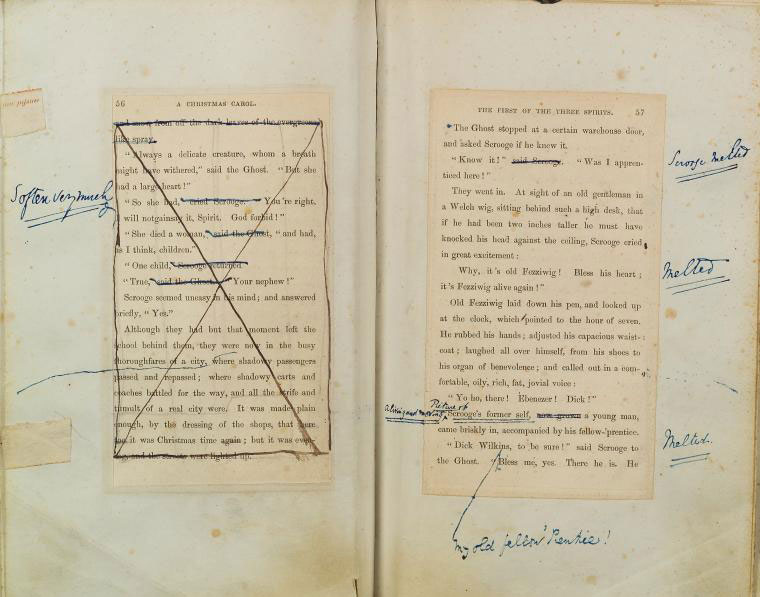 56 A CHRISTMAS CAROL.
and snow from off the dark leaves of the evergreens
like spray.
"Always a delicate creature, whom a breath
might have withered," said the Ghost. "But she
had a large heart!"
"So she had," cried Scrooge. "You're right.
will not gainsay it, Spirit. God forbid!"
"She died a woman," said the Ghost, "and had,
as I think, children."
"One child," Scrooge returned.
"True," said the Ghost. "Your nephew!"
Scrooge seemed uneasy in his mind; and answered
briefly, "Yes."
Although they had but that moment left the
school behind them, they were now in the busy
thoroughfares of a city, where shadowy passengers
passed and repassed; where shadowy carts and
coaches battled for the way, and all the strife and
tumult of a real city were. It was made plain
enough, by the dressing of the shops, that here
too it was Christmas time again; but it was even-
ing, and the streets were lighted up.
Soften very much
THE FIRST OF THE THREE SPIRITS. 57
The Ghost stopped at a certain warehouse door,
and asked Scrooge if he knew it.
"Know it!" said Scrooge. "Was I appren-
ticed here!"
They went in. At sight of an old gentleman in
a Welch wig, sitting behind such a high desk, that
if he had been two inches taller he must have
knocked his head against the ceiling, Scrooge cried
in great excitement:
Why, it's old Fezziwig! Bless his heart;
it's Fezziwig alive again!"
Old Fezziwig laid down his pen, and looked up
at the clock, which pointed to the hour of seven.
He rubbed his hands; adjusted his capacious waist-
coat; laughed all over himself, from his shoes to
his organ of benevolence; and called out in a com-
fortable, oily, rich, fat, jovial voice:
"Yo ho, there! Ebenezer! Dick!"
a living and moving Picture of
Scrooge's former self, now grown a young man,
came briskly in, accompanied by his fellow-'prentice.
"Dick Wilkins, to be sure!" said Scrooge to
the Ghost. "Bless me, yes. There he is. He
My old fellow 'Prentice!
Scrooge melted
Melted
Melted.